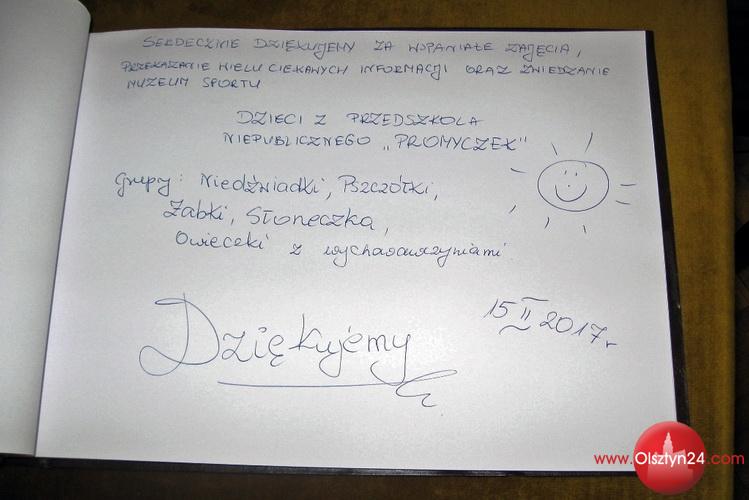 SERDECZNIE DZIĘKUJEMY ZA WSPANIAŁE ZAJĘCIA,
PRZEKAZANIE WIELU CIEKAWYCH INFORMACJI ORAZ ZWIEDZANIE
MUZEUM SPORTU
DZIECI Z PRZEDSZKOLA
NIEPUBLICZNEGO „PROMYCZEK"
Grupy: Niedźwiadki, Pszczółki,
Żabki, Słoneczka,
Owieczki z wychowawczyniami
Dziękujemy
15 II 2017r
www.Olsztyn24.com